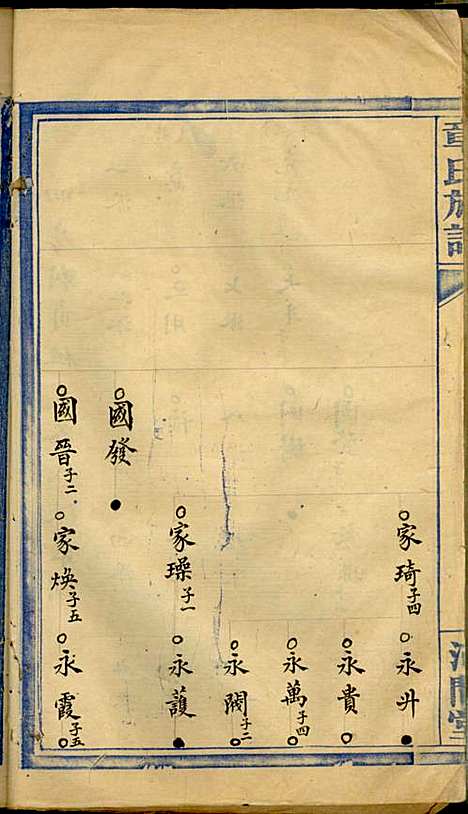 章氏族譜
家琦子四
永升
永貴
永萬子四
永閥子二
家璪子一
永護
國發
國晉子二
家煥子五
永霞子五